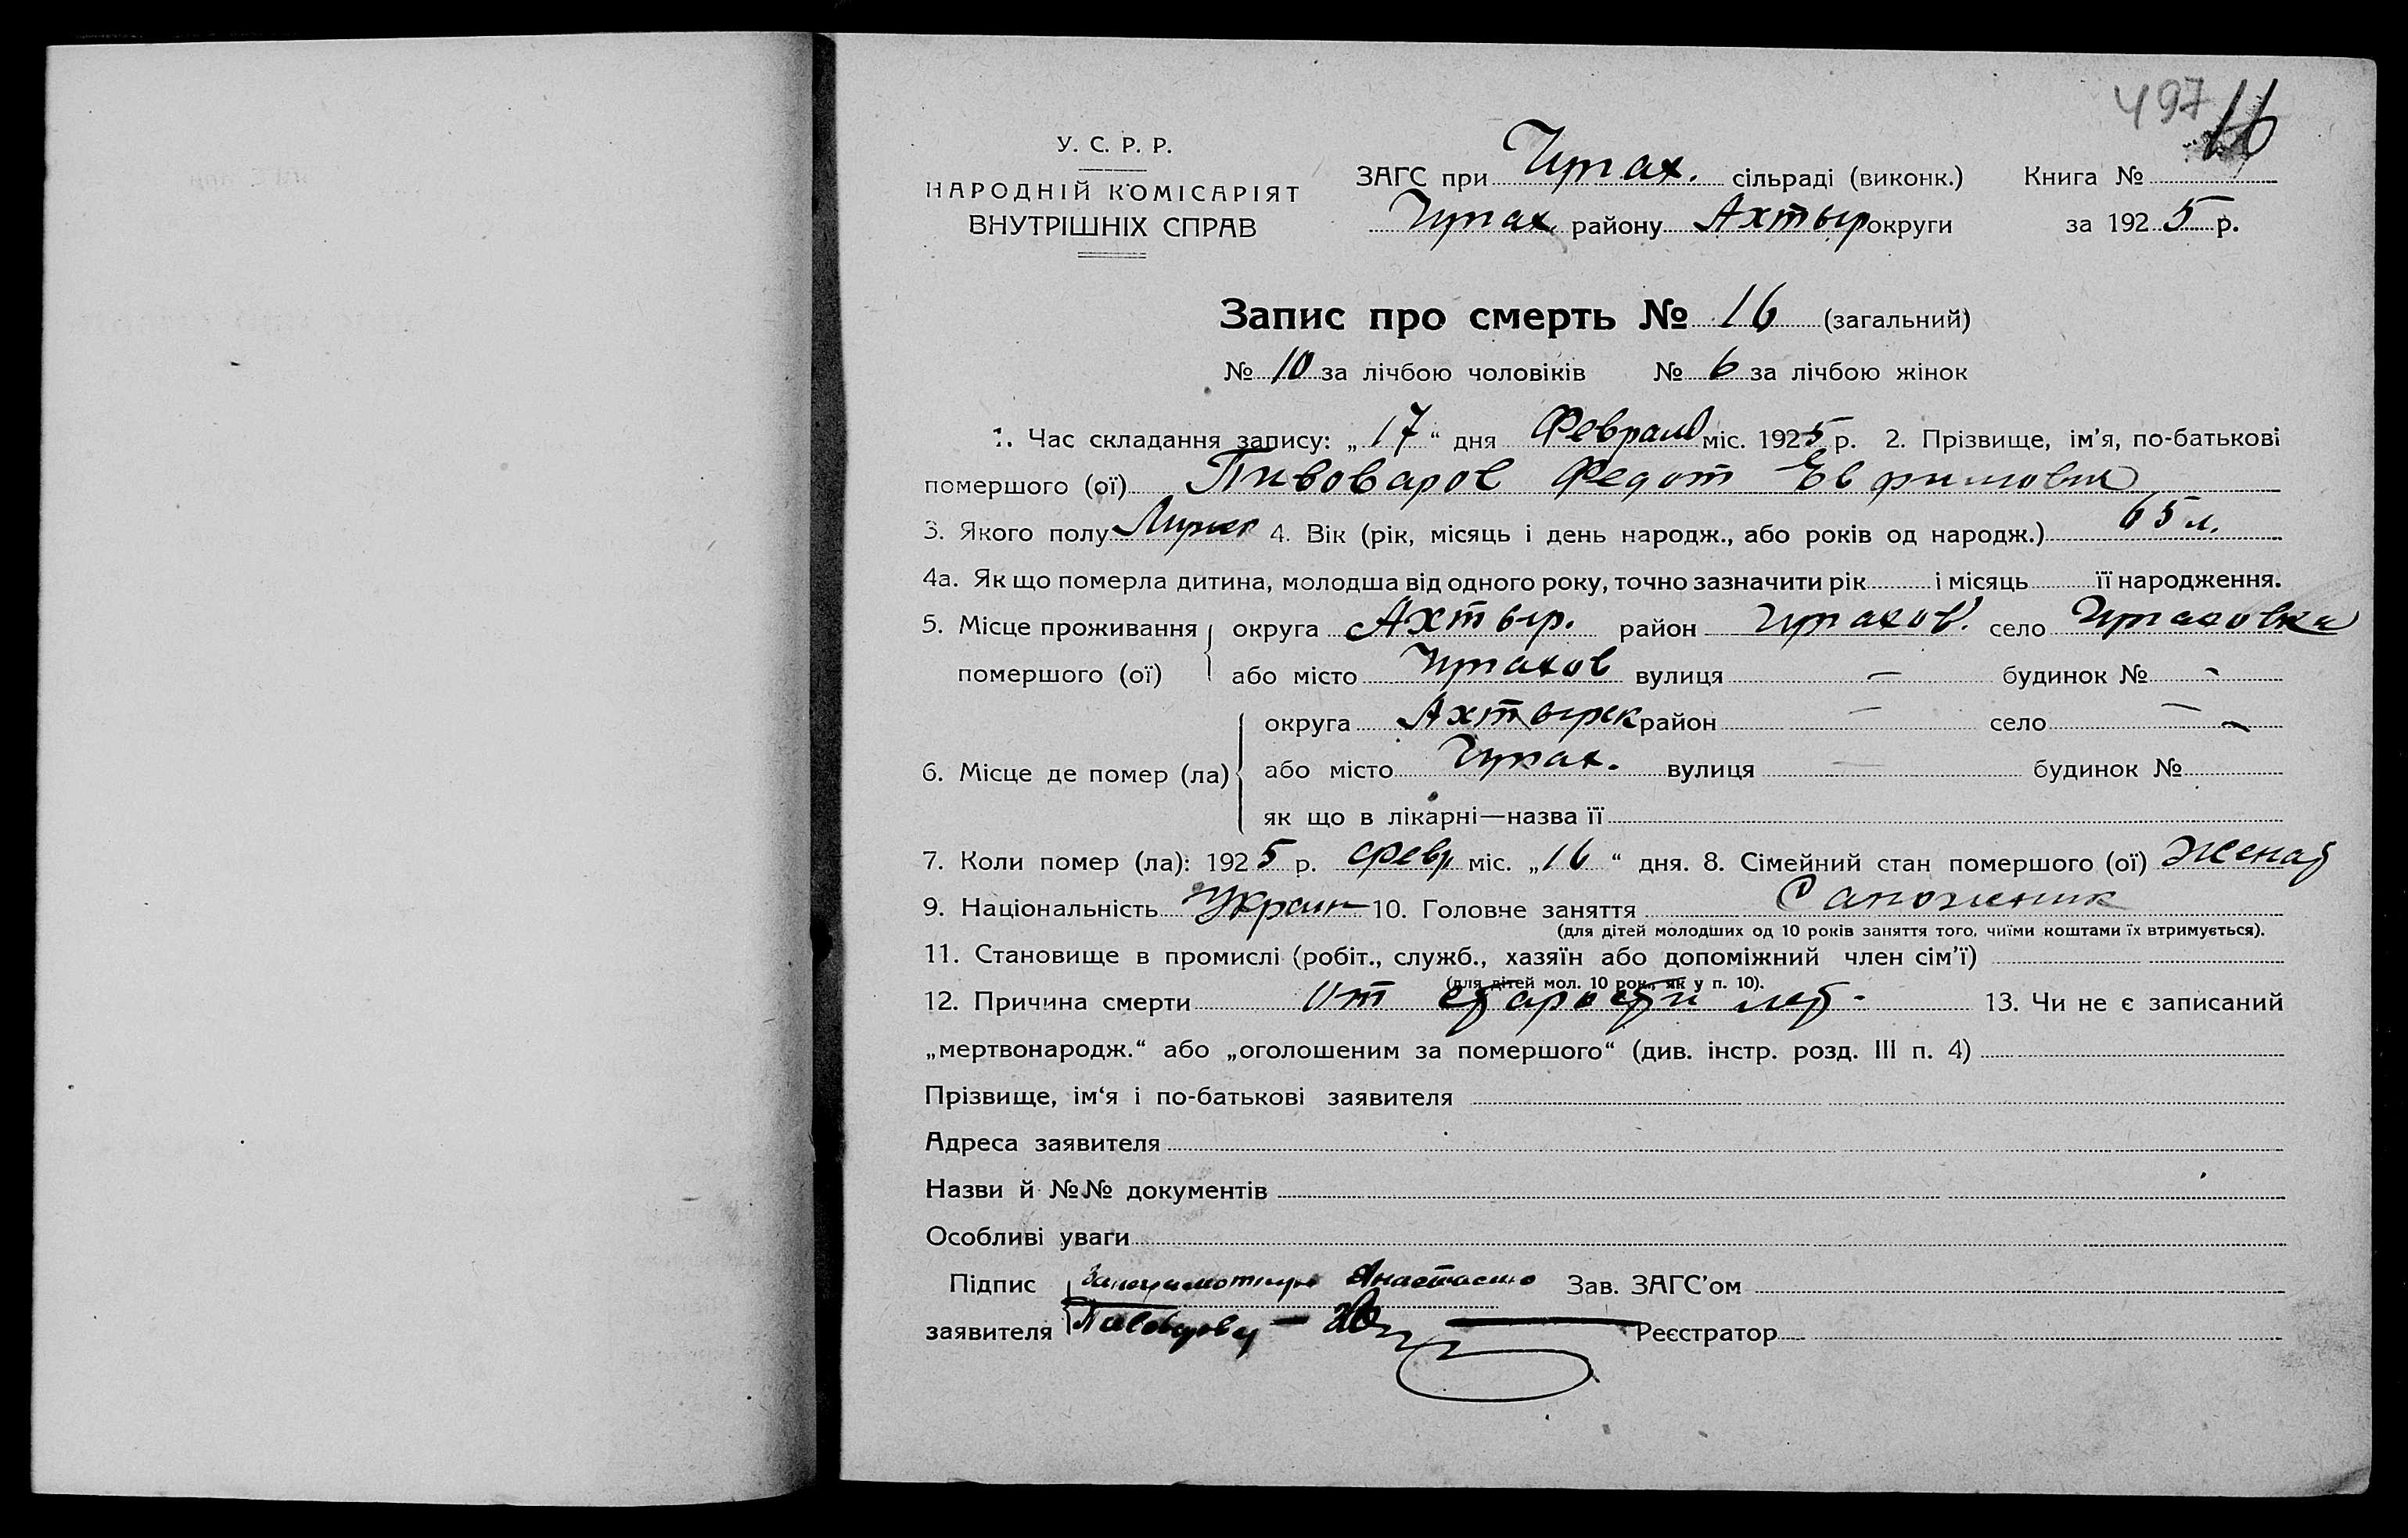 497 16
У. С. Р. Р.
НАРОДНІЙ КОМІСАРІЯТ
ВНУТРІШНІХ СПРАВ
ЗАГС при Чупах. сільраді (виконк.) Книга №
Чупах. району Ахтыр округи за 1925 р.
Запис про смерть № 16 (загальний)
№ 10 за лічбою чоловіків № 6 за лічбою жінок
1. Час складання запису: „17“ дня Февраля міс. 1925 р. 2. Прізвище, ім’я, по-батькові
помершого (ої) Пивоваров Федот Евфимович
3. Якого полу 4. Вік (рік, місяць і день народж., або років од народж.) 65 л.
4а. Як що померла дитина, молодша від одного року, точно зазначити рік і місяць її народження.
5. Місце проживання округа Ахтыр. район Чупахов. село Чупаховка
помершого (ої) або місто Чупахов вулиця — будинок № -
округа Ахтырск район — село —
6. Місце де помер (ла) або місто Чупах. вулиця — будинок №
як що в лікарні—назва її
7. Коли помер (ла): 1925 р. февр міс. „16“ дня. 8. Сімейний стан помершого (ої) Женат
9. Національність Украин 10. Головне заняття Сапожник
(для дітей молодших од 10 років заняття того, чиїми коштами їх втримується).
11. Становище в промислі (робіт., служб., хазяїн або допоміжний член сім’ї)
(для дітей мол. 10 рок., як у п. 10).
12. Причина смерти От старости лет - 13. Чи не є записаний
„мертвонародж.“ або „оголошеним за помершого“ (див. інстр. розд. III п. 4)
Прізвище, ім‘я і по-батькові заявителя
Адреса заявителя
Назви й №№ документів
Особливі уваги
Підпис За неграмотную Анастасию Зав. ЗАГС’ом
заявителя Реєстратор